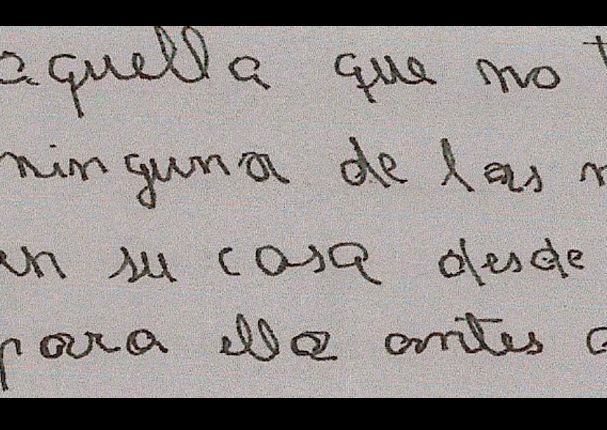 aquella que no t
ninguna de las n
en su casa desde
para ella antes a